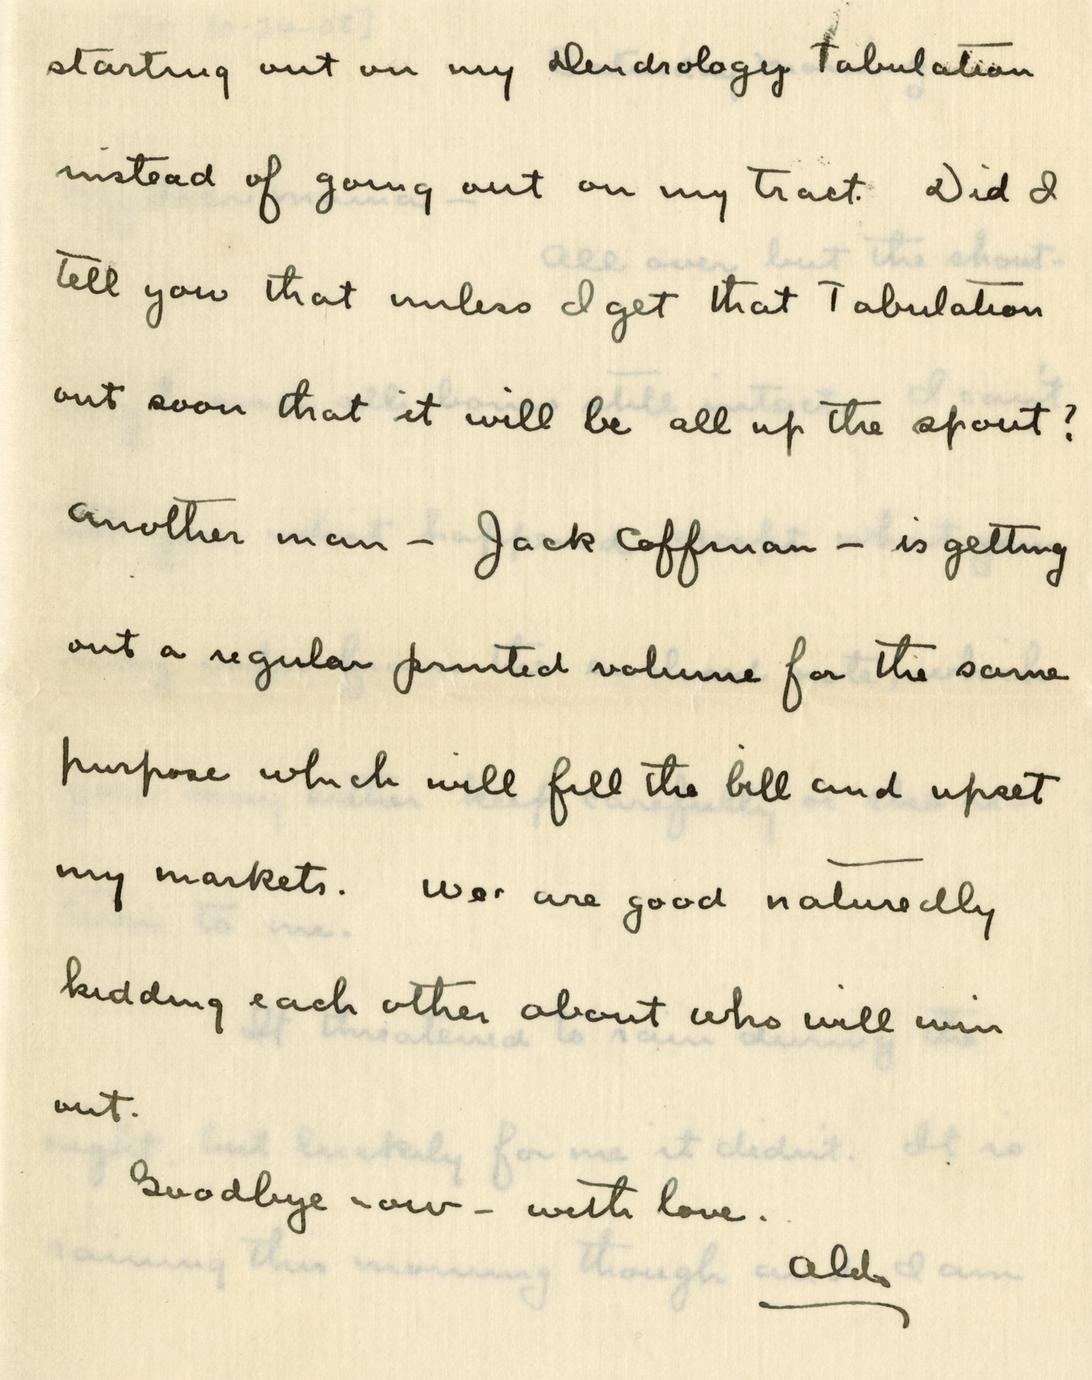 starting out on my Dendrology Tabulation
instead of going out on my tract. Did I
tell you that unless I get that Tabulation
out soon that it will be all up the spout?
Another man – Jack Coffman – is getting
out a regular printed volume for the same
purpose which will fill the bill and upset
my markets. We are good naturedly
kidding each other about who will win
out.
Goodbye now – with love.
Aldo